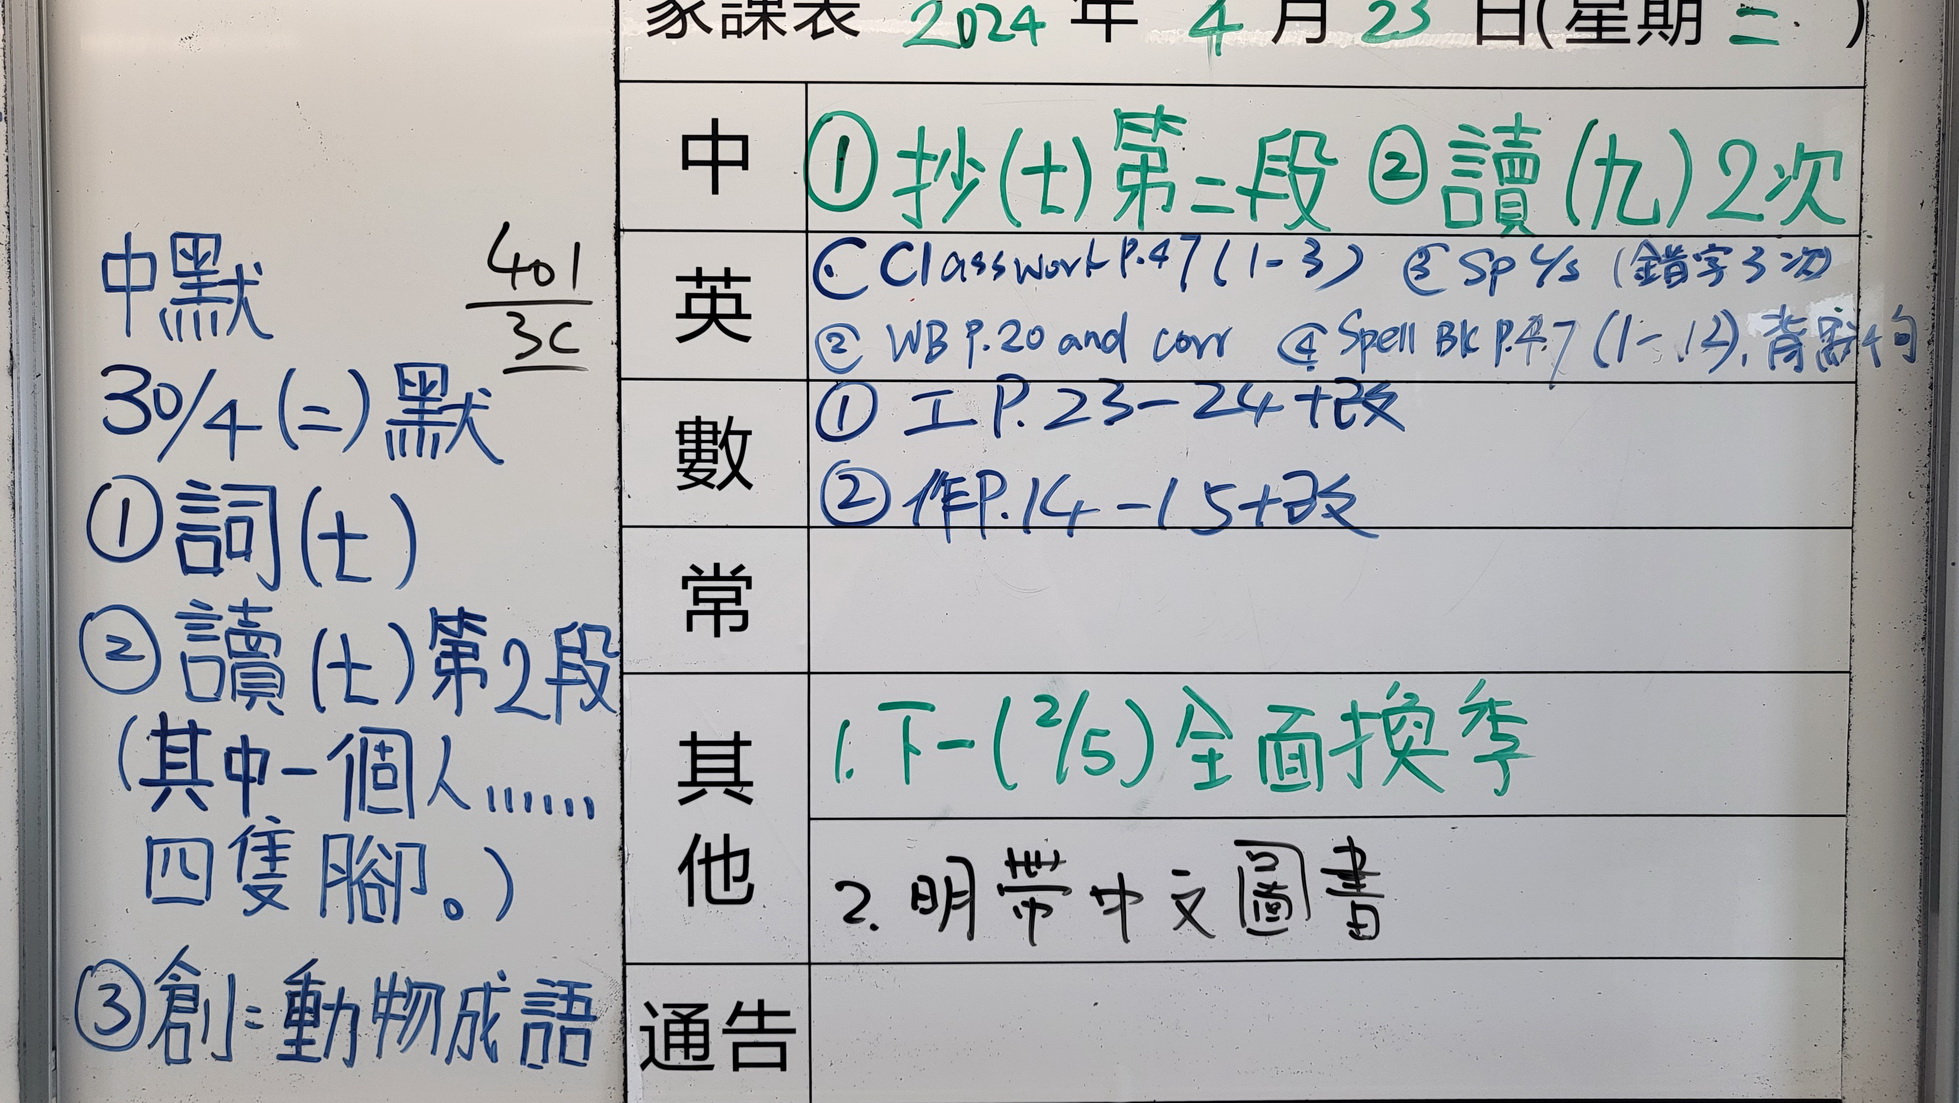 家課表 2024 年 4 月 23 日(星期 二 )
中 ①抄(十)第二段 ②讀(九)2次
英 Classwork P.47 (1-3) ③ Sp 4/5 (錯字3次)
② WB P.20 and corr ④ Spell BK P.47 (1-12),背
數 ① 工P.23-24+改
② 作P.14-15+改
常
其他 1. 下一(2/5)全面換季
2. 明帶中文圖書
通告
中默 401
3C
30/4(二)默
①詞(十)
②讀(十)第2段
(其中一個人......
四隻腳。)
③創:動物成語